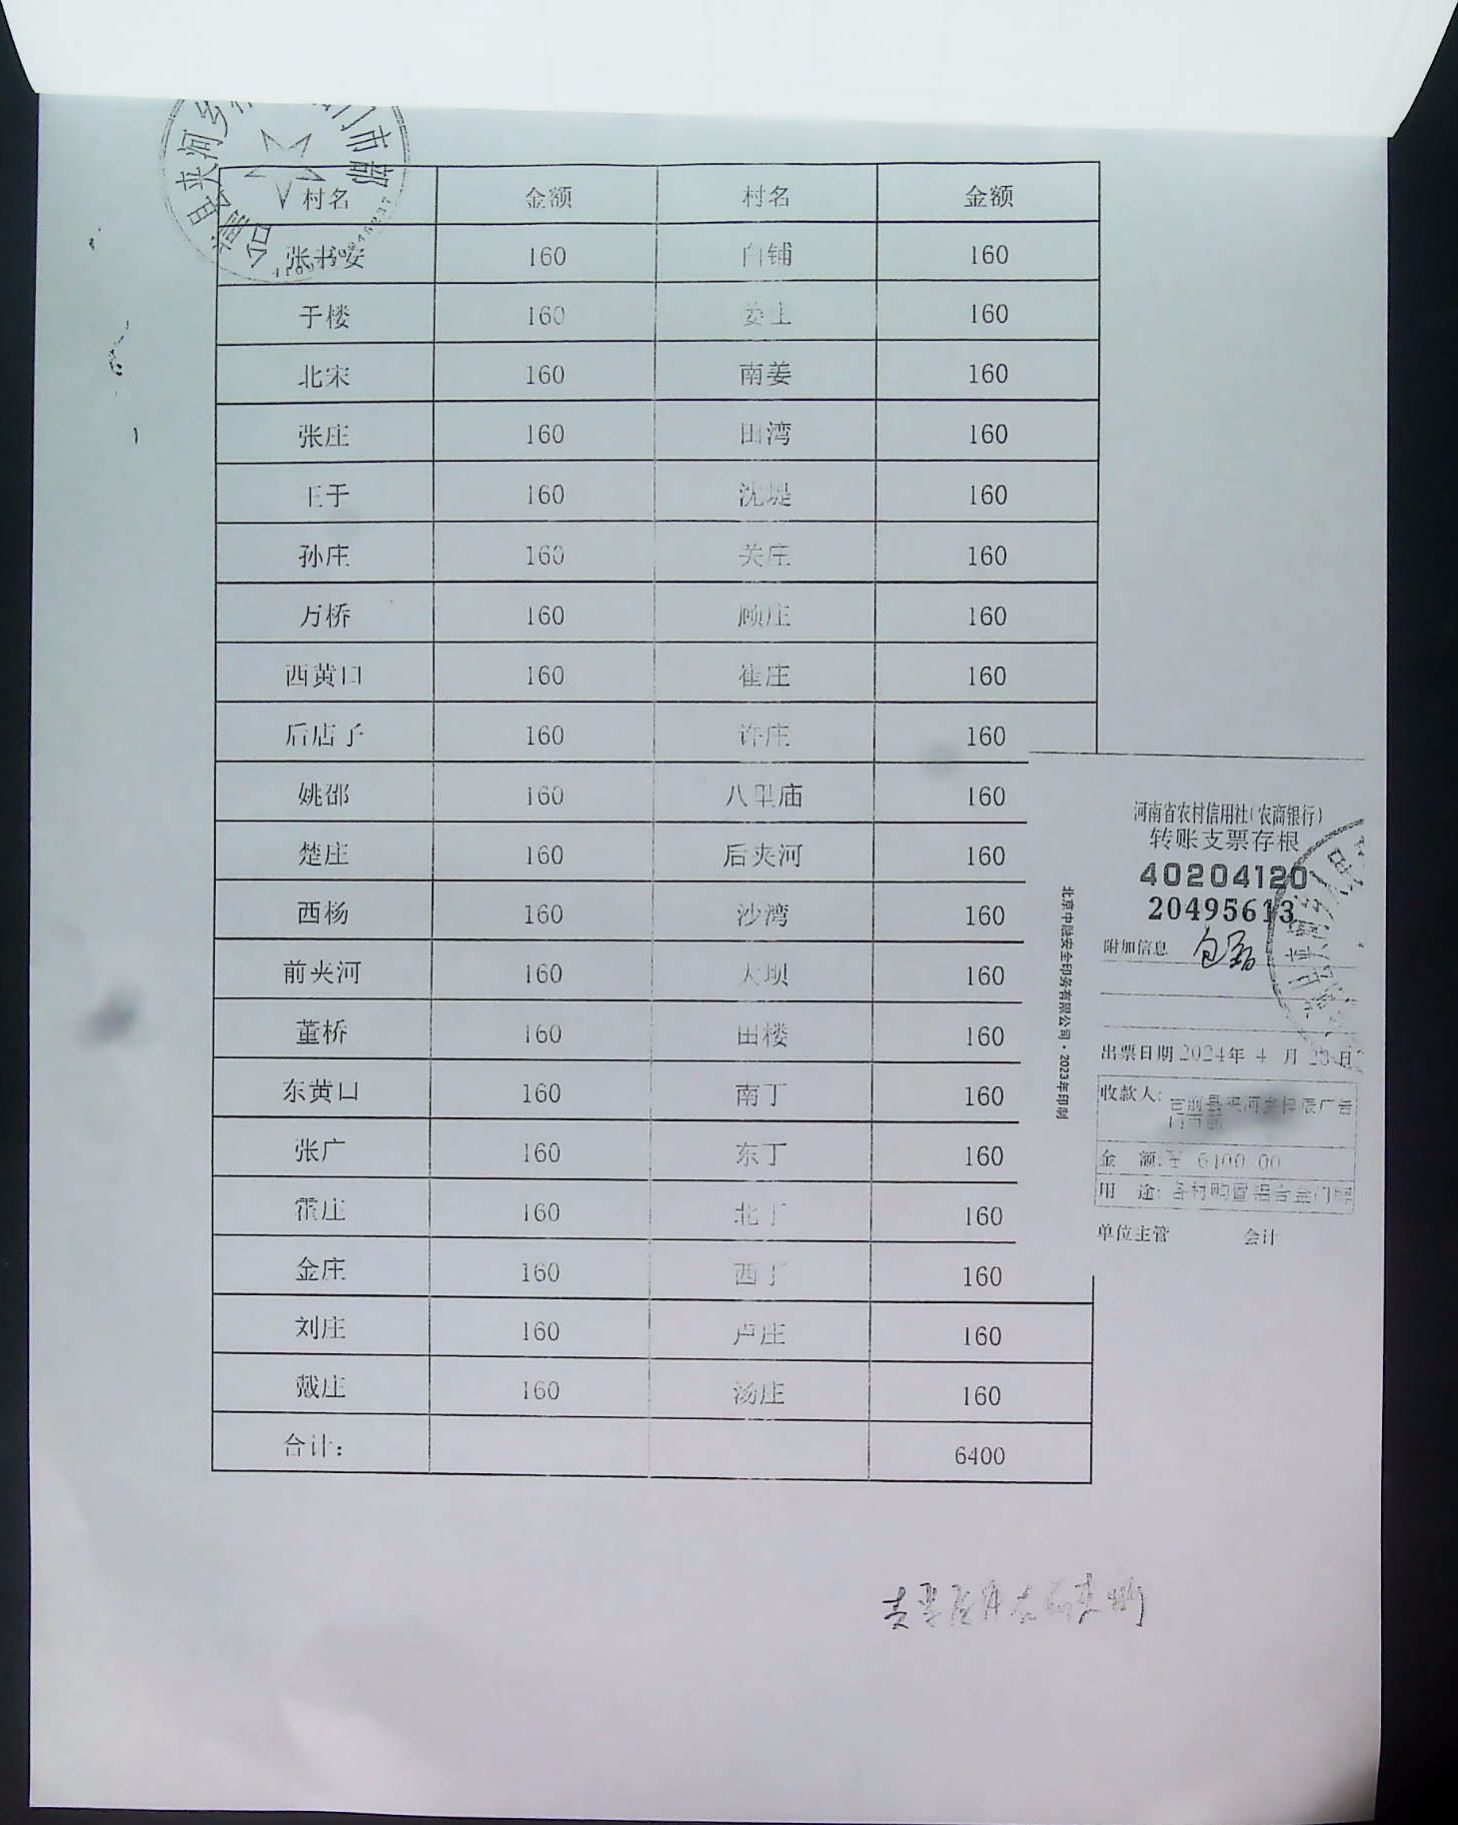 村名 金额 村名 金额
张书安 160 白铺 160
于楼 160 姜庄 160
北宋 160 南姜 160
张庄 160 田湾 160
王于 160 沈堤 160
孙庄 160 关庄 160
万桥 160 顾庄 160
西黄口 160 崔庄 160
后店子 160 许庄 160
姚邵 160 八里庙 160
楚庄 160 后夹河 160
西杨 160 沙湾 160
前夹河 160 大坝 160
董桥 160 田楼 160
东黄口 160 南丁 160
张广 160 东丁 160
霍庄 160 北丁 160
金庄 160 西丁 160
刘庄 160 卢庄 160
戴庄 160 汤庄 160
合计: 6400
河南省农村信用社(农商银行)
转账支票存根
40204120
20495613
附加信息
出票日期 2024年 4 月 日
收款人: 台前县夹河乡 广告
门市部
金 额:¥ 6400.00
用 途: 各村购置铝合金门牌
单位主管 会计
北京中融安全印务有限公司·2023年印制